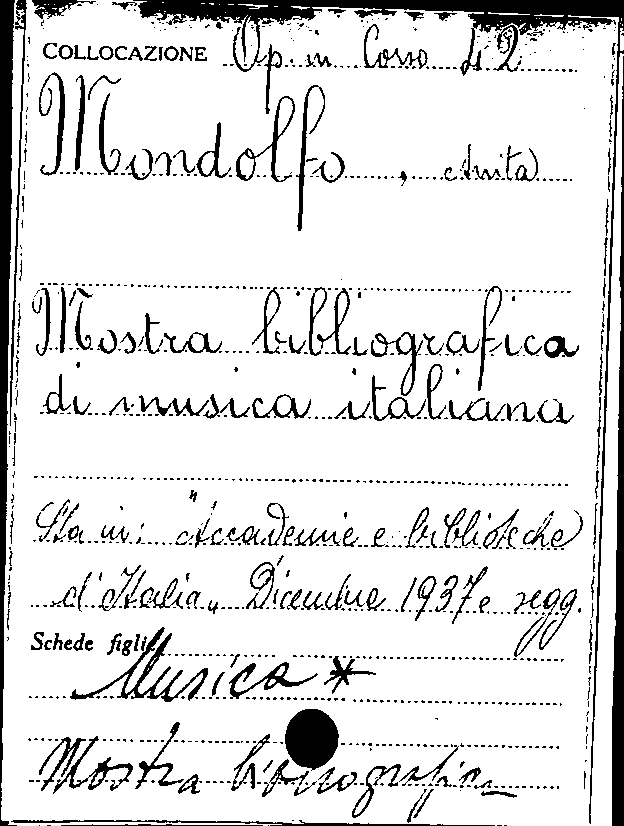 COLLOCAZIONE Op. in Corso 42
Mondolfo, Anita
Mostra bibliografica
di musica italiana
Sta in: "Accademie e biblioteche
d'Italia„ Dicembre 1937 e segg.
Schede figlie
Musica *
Mostra